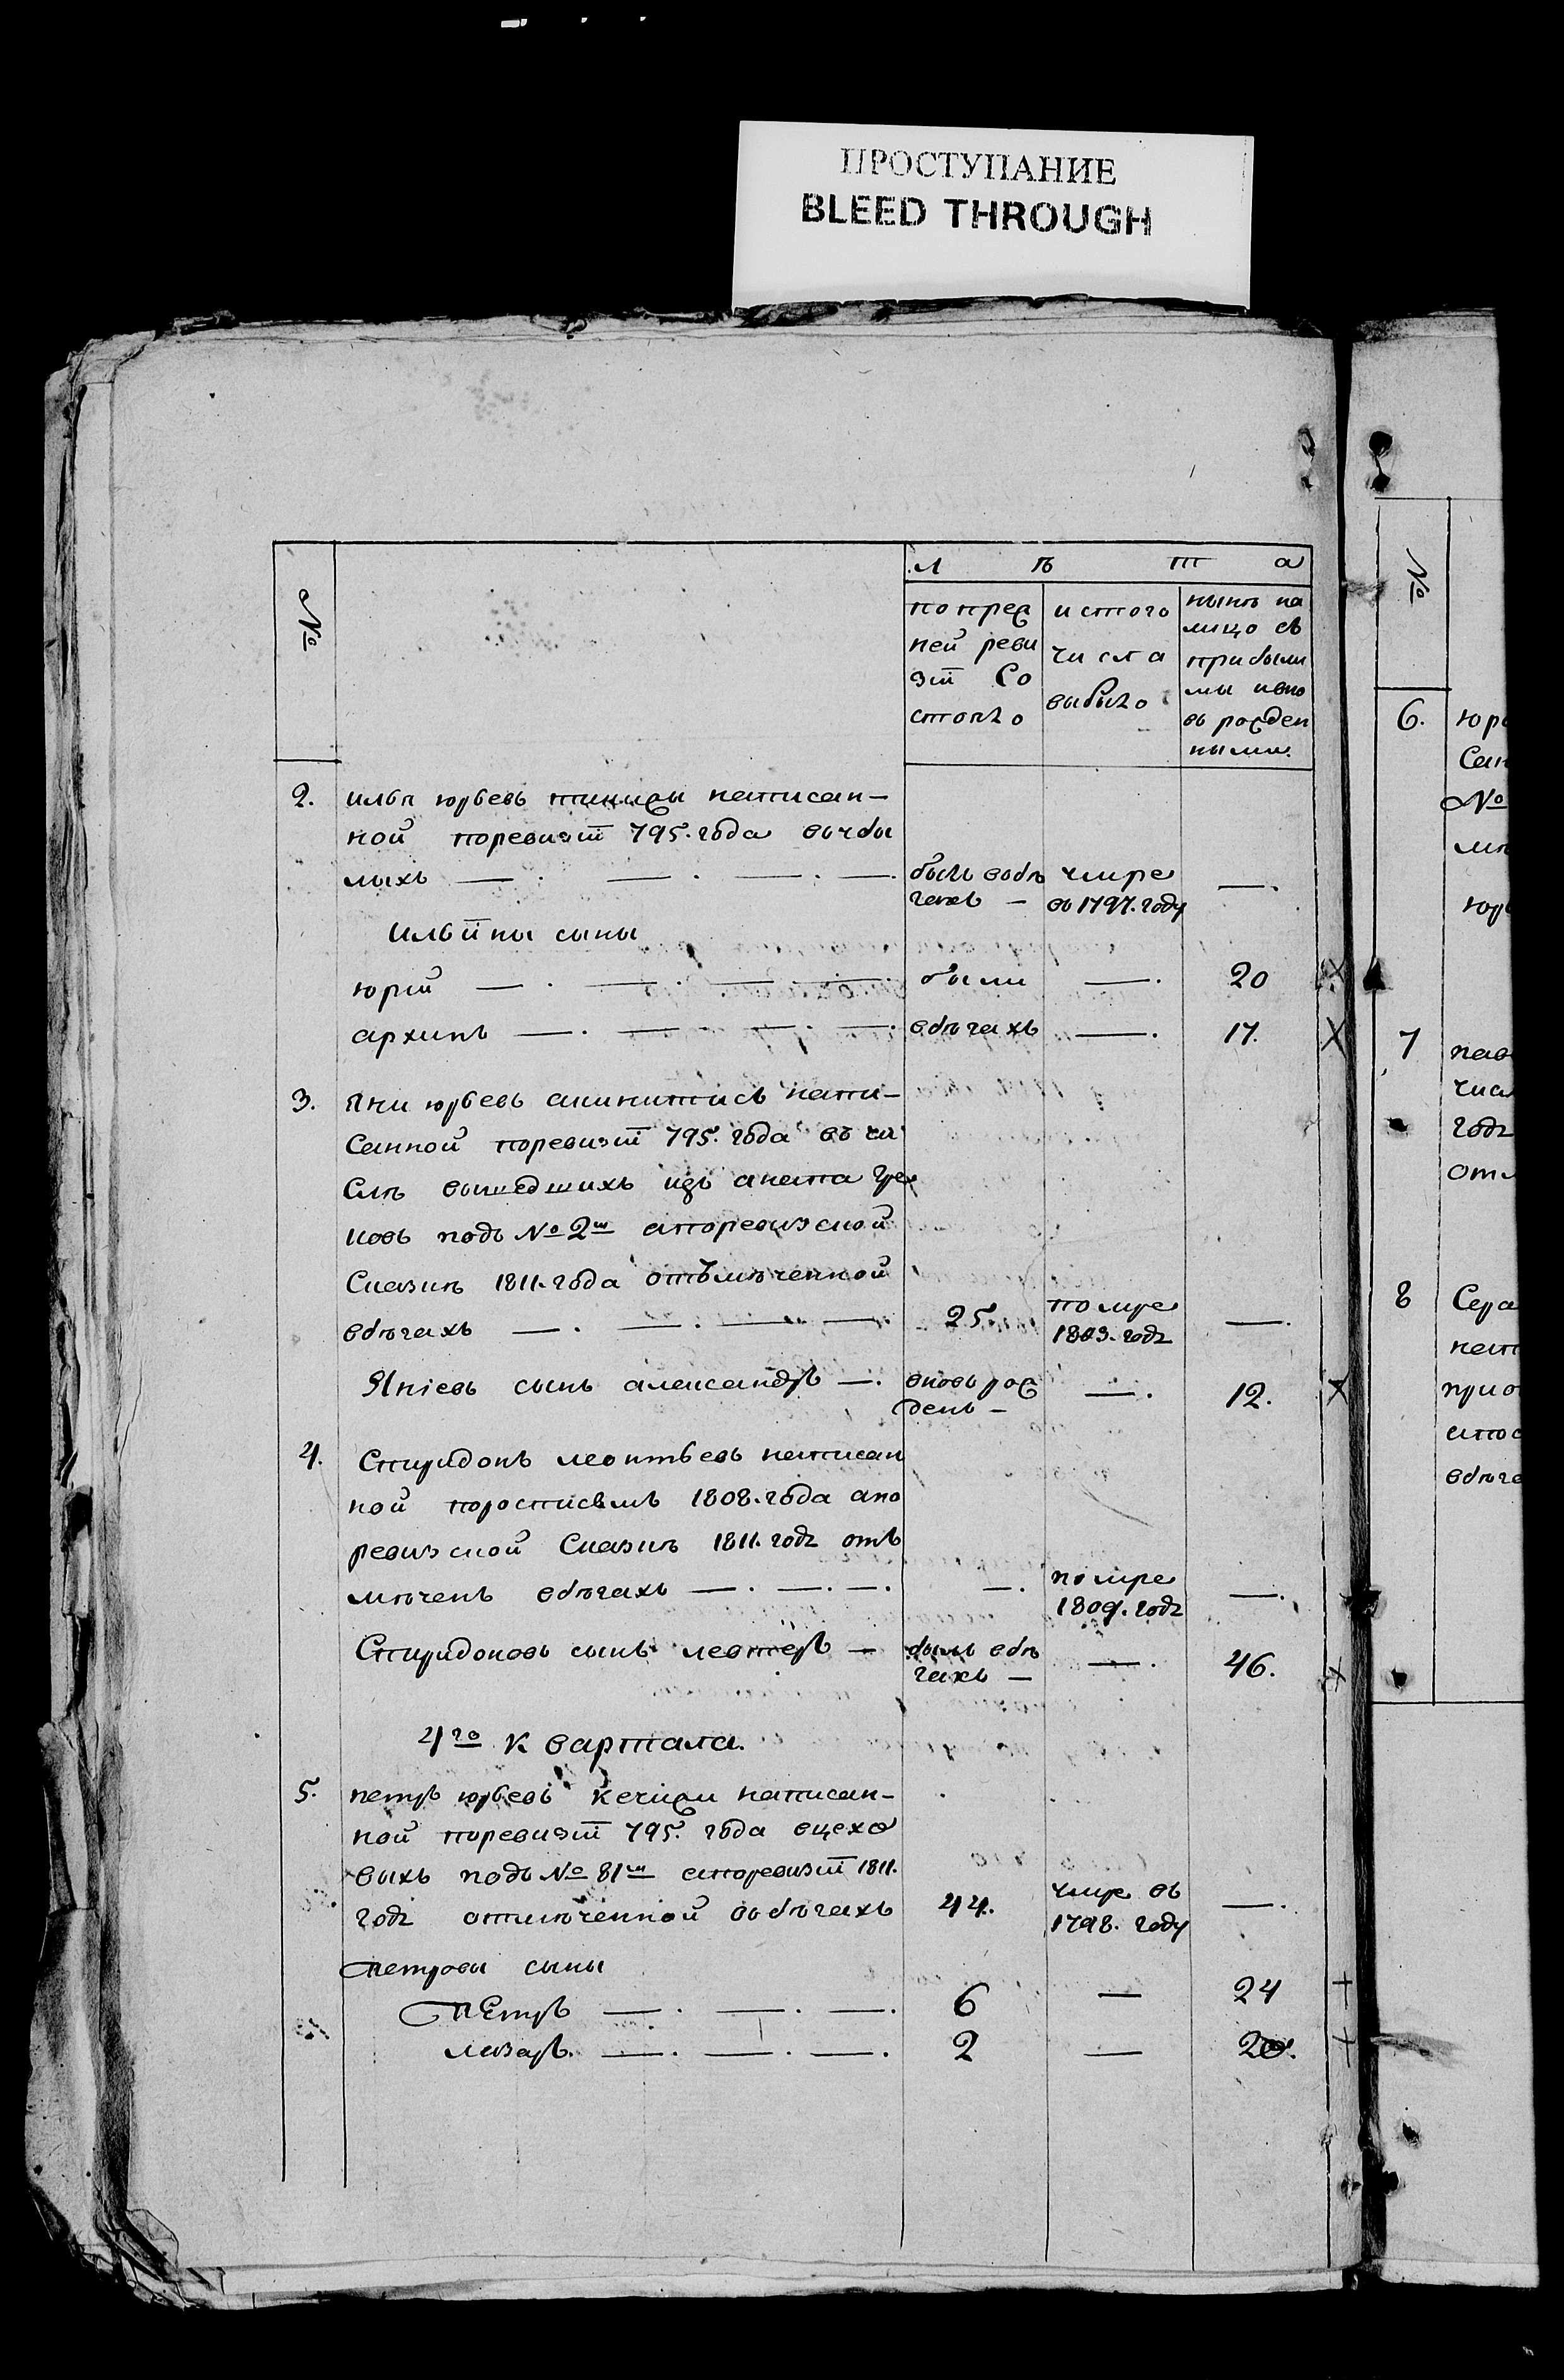 ПРОСТУПАНИЕ
BLEED THROUGH
№
л ѣ т а
попреж
ней реви
зіи Со
стояло
истого
числа
выбыло
нынѣ на
лицо съ
прибылы
ми ивно
вь рожден
ными.
2. илья юрьевъ написан-
ной поревизіи 795. года
лыхъ — . — . — . — . былъ вобѣ умре — .
гахъ — въ 1797. году
Ильіны сыны
юрій — . — . — . — . были — . 20 ×
архипъ — . — . — . — . вбѣгахъ — . 17. ×
3. Яни юрьевъ напи-
Санной поревизіи 795. года въ чи
слѣ вышедшихъ изъ аната гре
ковъ подъ № 2м апоревизской
Сказкѣ 1811. года отъмѣченной
вбѣгахъ — . — . — — 25. помре 1803. годꙋ — .
Яніевъ сынъ александръ — . вновь рож — . 12. ×
денъ —
4. Спиридонъ леонтьевъ написан
ной поросписямъ 1808. года апо
ревизской Сказкѣ 1811. годꙋ отъ
мѣченъ вбѣгахъ — . — . — . — . помре 1809. годꙋ — .
Спиридоновъ сынъ левтеръ — былъ вбѣ — . 46. ×
гахъ —
4го квартала.
5. петръ юрьевъ написан-
ной поревизіи 795. года вцехо
выхъ подъ № 81м апоревизіи 1811.
годꙋ отмѣченной вобѣгахъ 44. умре въ 1798. году — .
петровы сыны
пЕтръ — . — . — . 6 — 24 +
лазарь. — . — . — . 2 — 20. +
№
6. юрь
Сан
№
мѣ
юрь
7 пав
числ
годꙋ
отм
8 Сера
нап
апос
вбѣга